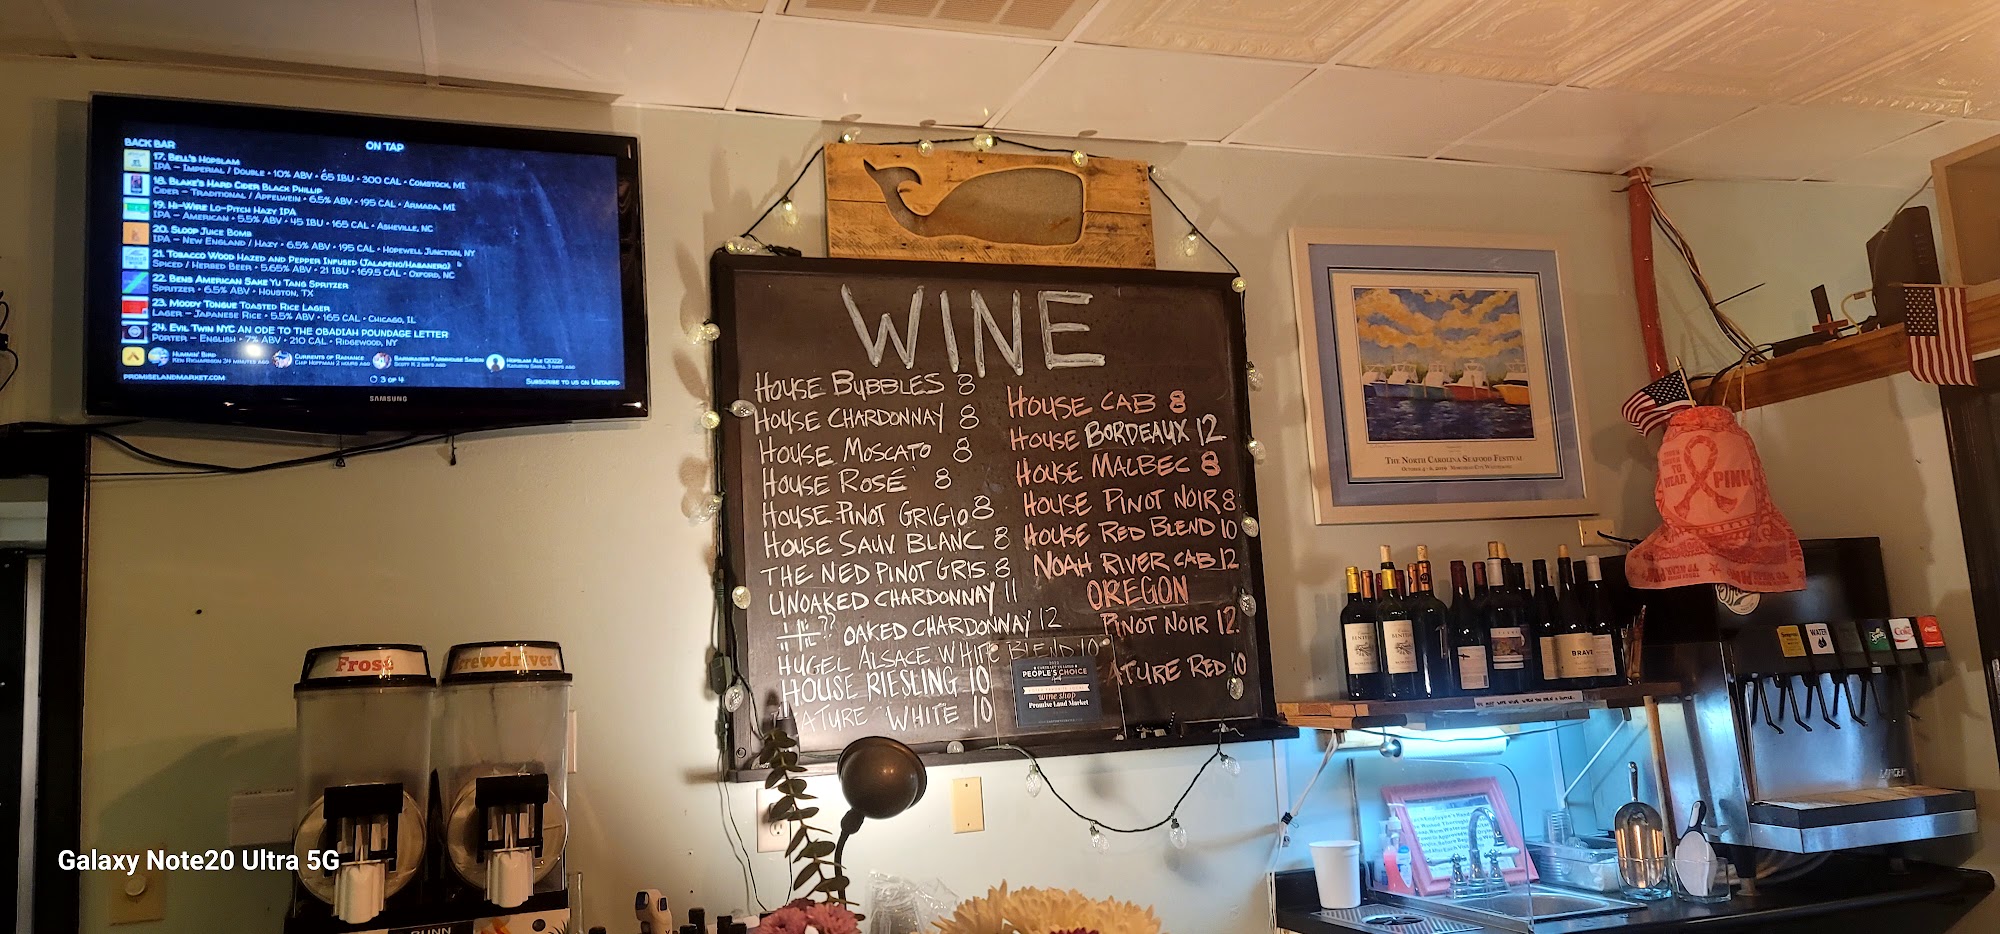 BACK BAR
ON TAP
17. BELL'S HOPSLAM
IPA – IMPERIAL / DOUBLE • 10% ABV • 65 IBU • 300 CAL • COMSTOCK, MI
18. BLAKE'S HARD CIDER BLACK PHILLIP
CIDER – TRADITIONAL / APFELWEIN • 6.5% ABV • 195 CAL • ARMADA, MI
19. HI-WIRE LO-PITCH HAZY IPA
IPA – AMERICAN • 5.5% ABV • 45 IBU • 165 CAL • ASHEVILLE, NC
20. SLOOP JUICE BOMB
IPA – NEW ENGLAND / HAZY • 6.5% ABV • 195 CAL • HOPEWELL JUNCTION, NY
21. TOBACCO WOOD HAZED AND PEPPER INFUSED (JALAPENO/HABANERO)
SPICED / HERBED BEER • 5.65% ABV • 21 IBU • 169.5 CAL • OXFORD, NC
22. BENS AMERICAN SAKE YU TANG SPRITZER
SPRITZER • 6.5% ABV • HOUSTON, TX
23. MOODY TONGUE TOASTED RICE LAGER
LAGER – JAPANESE RICE • 5.5% ABV • 165 CAL • CHICAGO, IL
24. EVIL TWIN NYC AN ODE TO THE OBADIAH POUNDAGE LETTER
PORTER – ENGLISH • 7% ABV • 210 CAL • RIDGEWOOD, NY
HUMMIN' BIRD
KEN RICHARDSON 34 MINUTES AGO
CURRENTS OF RADIANCE
CHIP HOFFMAN 2 HOURS AGO
BARNRAISER FARMHOUSE SAISON
SCOTT R 2 DAYS AGO
HOPSLAM ALE (2022)
3 DAYS AGO
PROMISELANDMARKET.COM
3 OF 4
SUBSCRIBE TO US ON UNTAPPD
SAMSUNG
WINE
HOUSE BUBBLES 8
HOUSE CHARDONNAY 8
HOUSE MOSCATO 8
HOUSE ROSÉ 8
HOUSE PINOT GRIGIO 8
HOUSE SAUV. BLANC 8
THE NED PINOT GRIS. 8
UNOAKED CHARDONNAY 11
?? OAKED CHARDONNAY 12
HUGEL ALSACE WHITE BLEND 10
HOUSE RIESLING 10
ATURE WHITE 10
HOUSE CAB 8
HOUSE BORDEAUX 12
HOUSE MALBEC 8
HOUSE PINOT NOIR 8
HOUSE RED BLEND 10
NOAH RIVER CAB 12
OREGON
PINOT NOIR 12.
ATURE RED 10
PEOPLE'S CHOICE
wine shop
Promise Land Market
THE NORTH CAROLINA SEAFOOD FESTIVAL
WEAR PINK
TO
BRAVE
WATER
Coke
Frosé
Screwdriver
BUNN
Galaxy Note20 Ultra 5G